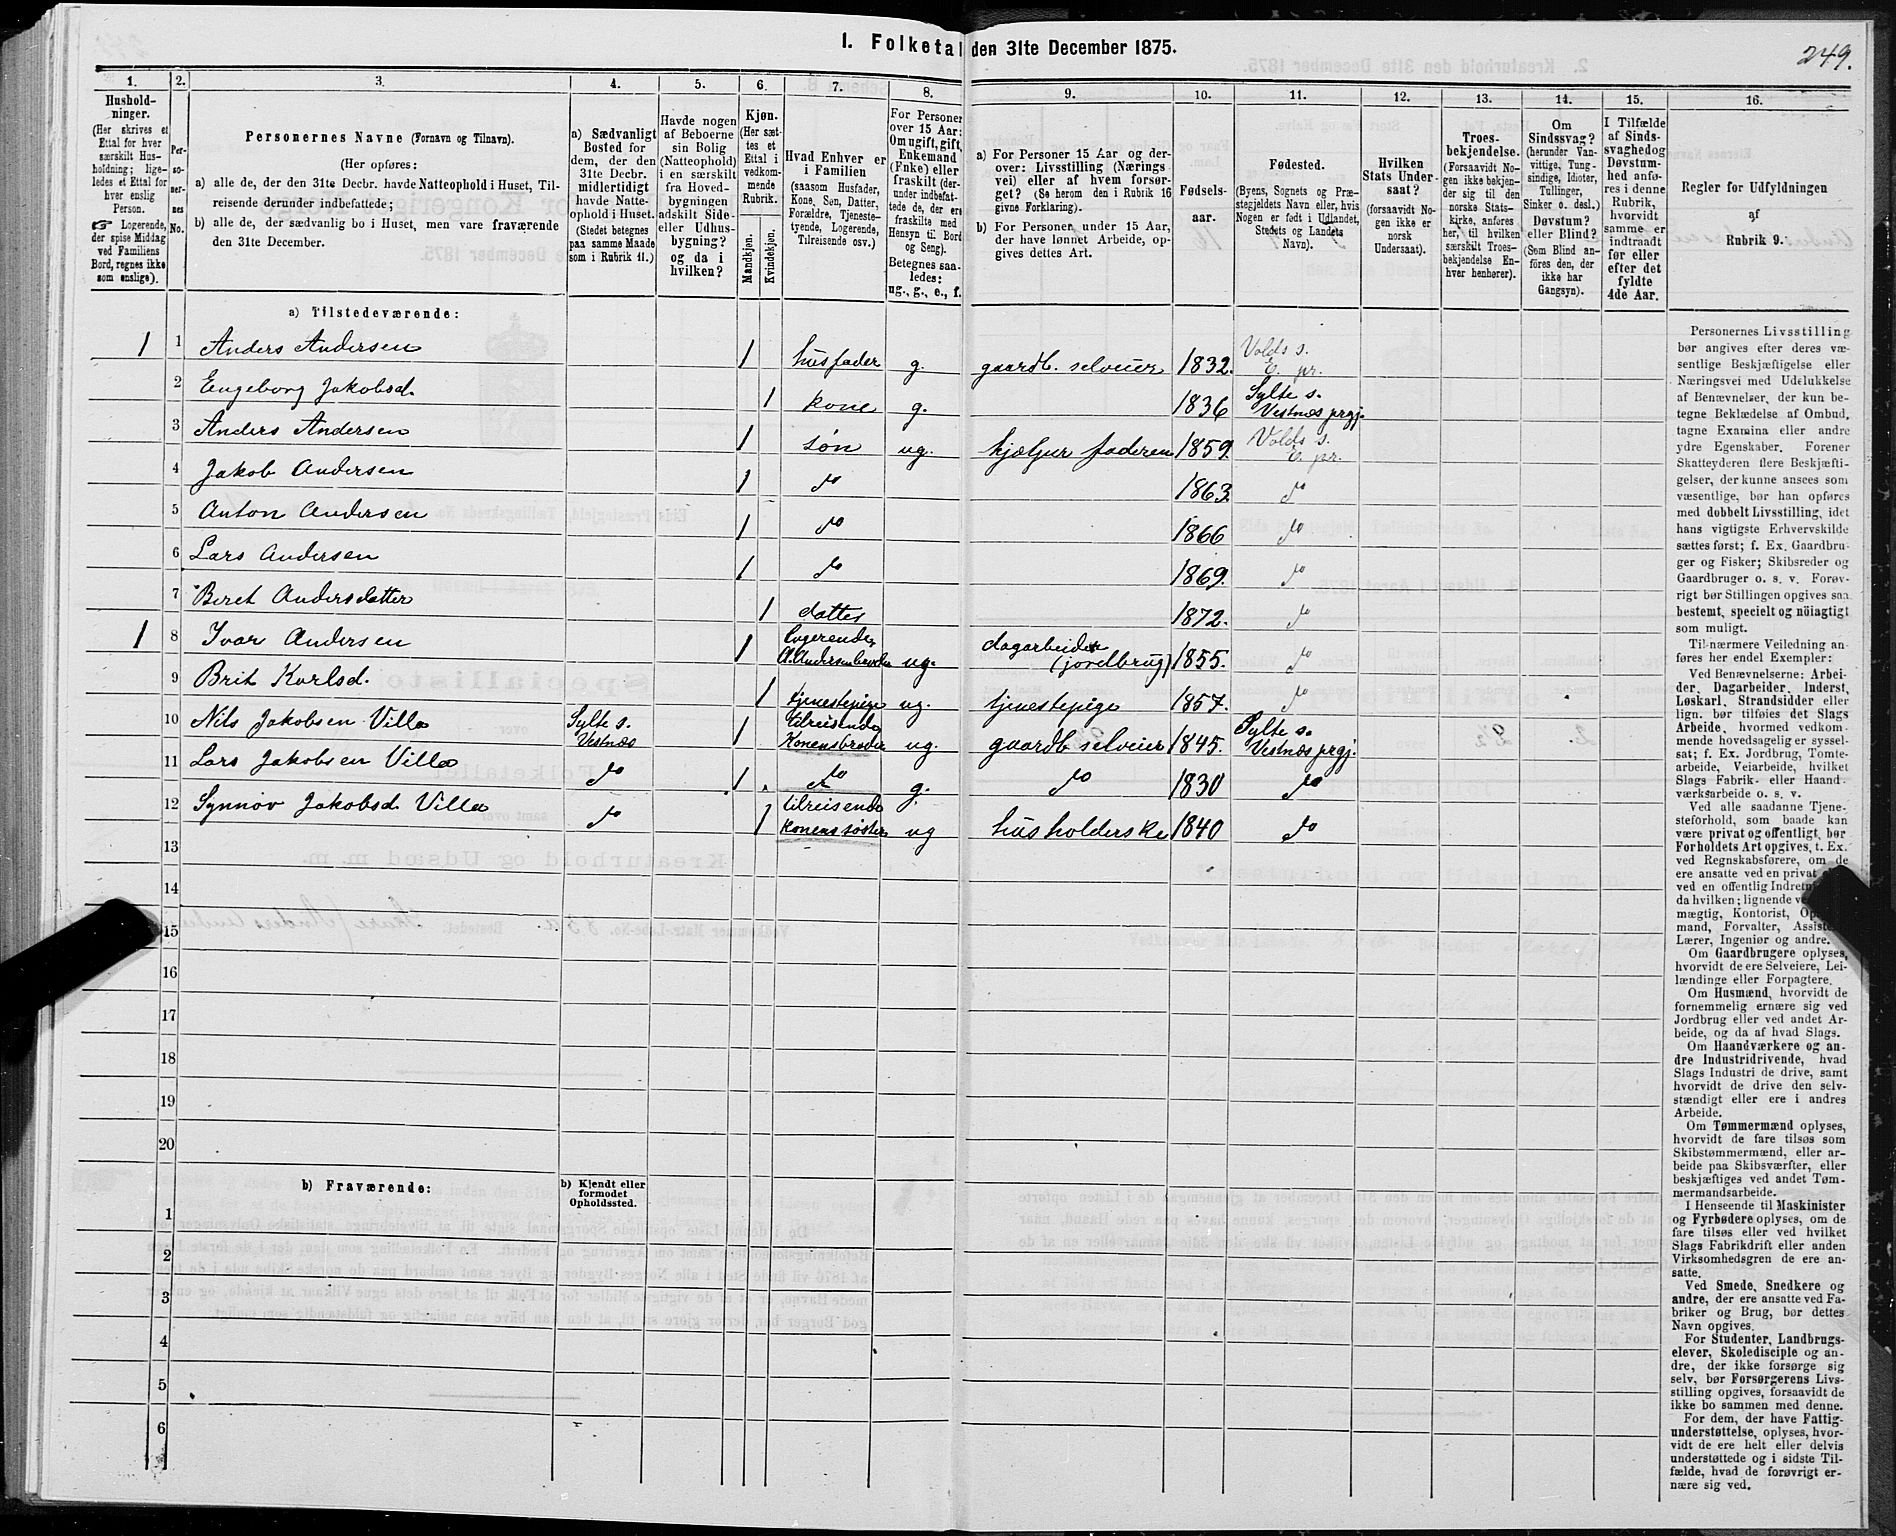 I. Folketal den 31te December 1875.
249.
1.
2.
3.
4.
5.
6.
7.
8.
9.
10.
11.
12.
13.
14.
15.
16.
Hushold-
ninger.
(Her skrives et
Ettal for hver
særskilt Hus-
holdning; lige-
ledes et Ettal for
hver enslig
Person.
☞ Logerende,
der spise Middag
ved Familiens
Bord, regnes ikke
som enslige).
Per-
so-
ner-
nes
No.
Personernes Navne (Fornavn og Tilnavn).
(Her opføres:
a) alle de, der den 31te Decbr. havde Natteophold i Huset, Til-
reisende derunder indbefattede;
b) alle de, der sædvanlig bo i Huset, men vare fraværende
den 31te December.
a) Sædvanligt
Bosted for
dem, der den
31te Decbr.
midlertidigt
havde Natte-
ophold i Huset.
(Stedet betegnes
paa samme Maade
som i Rubrik 11.)
Havde nogen
af Beboerne
sin Bolig
(Natteophold)
i en særskilt
fra Hoved-
bygningen
adskilt Side-
eller Udhus-
bygning?
og da i
hvilken?
Kjøn.
(Her sæt-
tes et
Ettal i
vedkom-
mende
Rubrik.
Mandkjøn.
Kvindekjøn.
Hvad Enhver er
i Familien
(saasom Husfader,
Kone, Søn, Datter,
Forældre, Tjeneste-
tyende, Logerende,
Tilreisende osv.)
For Personer
over 15 Aar:
Om ugift, gift,
Enkemand
(Enke) eller
fraskilt (der-
under indbefat-
tede de, der ere
fraskilte med
Hensyn til Bord
og Seng).
Betegnes saa-
ledes:
ug., g., e., f.
a) For Personer 15 Aar og der-
over: Livsstilling (Nærings-
vei) eller af hvem forsør-
get? (Se herom den i Rubrik 16
givne Forklaring).
b) For Personer under 15 Aar,
der have lønnet Arbeide, op-
gives dettes Art.
Fødsels-
aar.
Fødested.
(Byens, Sognets og Præ-
stegjeldets Navn eller, hvis
Nogen er født i Udlandet,
Stedets og Landets
Navn).
Hvilken
Stats Under-
saat?
(forsaavidt No-
gen ikke er
norsk
Undersaat).
Troes-
bekjendelse.
(Forsaavidt No-
gen ikke bekjen-
der sig til den
norske Stats-
kirke, anføres
her, til hvilken
særskilt Troes-
bekjendelse En-
hver henhører).
Om
Sindssvag?
(herunder Van-
vittige, Tung-
sindige, Idioter,
Tullinger,
Sinker o. desl.)
Døvstum?
eller Blind?
(Som Blind an-
føres den, der
ikke har
Gangsyn).
I Tilfælde
af Sinds-
svaghed og
Døvstum-
hed anfø-
res i denne
Rubrik,
hvorvidt
samme er
indtraadt
før eller
efter det
fyldte
4de Aar.
Regler for Udfyldningen
af
Rubrik 9.
a) Tilstedeværende:
1 1 Anders Andersen 1 husfader g. gaardb. selveier 1832. Volds s. E. pr.
2 Engeborg Jakobsd. 1 kone g. 1836 Sylte s. Vestnæs prgj.
3 Anders Andersen 1 søn ug. hjælper faderen 1859. Volds s. E. pr.
4 Jakob Andersen 1 do 1863. do
5 Anton Andersen 1 do 1866 do
6 Lars Andersen 1 do 1869. do
7 Beret Andersdatter 1 datter 1872. do
1 8 Ivar Andersen 1 Logerende, A. Andersens broder ug. dagarbeider (jordbrug) 1855. do
9 Brit Karlsd. 1 tjenestepige ug. tjenestepige 1857. do
10 Nils Jakobsen Villa Sylte s. Vestnæs 1 tilreisende Konens broder ug. gaardb. selveier 1845. Sylte s. Vestnæs prgj.
11 Lars Jakobsen Villa do 1 do g. do 1830 do
12 Synnøv Jakobsd Villa do 1 tilreisende konens søster ug husholderske 1840 do
13
14
15
16
17
18
19
20
b) Fraværende:
b) Kjendt eller
formodet
Opholdssted.
1
2
3
4
5
6
Personernes Livsstilling
bør angives efter deres væ-
sentlige Beskjæftigelse eller
Næringsvei med Udelukkelse
af Benævnelser, der kun be-
tegne Beklædelse af Ombud,
tagne Examina eller andre
ydre Egenskaber. Forener
Skatteyderen flere Beskjæfti-
gelser, der kunne ansees som
væsentlige, bør han opføres
med dobbelt Livsstilling, idet
hans vigtigste Erhvervskilde
sættes først; f. Ex. Gaardbru-
ger og Fisker; Skibsreder og
Gaardbruger o. s. v. Forøv-
rigt bør Stillingen opgives saa
bestemt, specielt og nöiagtigt
som muligt.
Til nærmere Veiledning an-
føres her endel Exempler:
Ved Benævnelserne: Arbei-
der, Dagarbeider, Inderst,
Løskarl, Strandsidder eller
lign. bør tilføies det Slags
Arbeide, hvormed vedkom-
mende hovedsagelig er syssel-
sat; f. Ex. Jordbrug, Tomte-
arbeide, Veiarbeide, hvilket
Slags Fabrik- eller Haand-
værksarbeide o. s. v.
Ved alle saadanne Tjene-
steforhold, som baade kan
være privat og offentligt, bør
Forholdets Art opgives, t. Ex.
ved Regnskabsførere, om de
ere ansatte ved en privat
ved en offentlig Indretn
da hvilken; lignende ve
mægtig, Kontorist, Op
mand, Forvalter, Assiste
Lærer, Ingeniør og andre.
Om Gaardbrugere oplyses,
hvorvidt de ere Selveiere, Lei-
lændinge eller Forpagtere.
Om Husmænd, hvorvidt de
fornemmelig ernære sig ved
Jordbrug eller ved andet Ar-
beide, og da af hvad Slags.
Om Haandværkere og an-
dre Industridrivende, hvad
Slags Industri de drive, samt
hvorvidt de drive den selv-
stændigt eller ere i andres
Arbeide.
Om Tømmermænd oplyses,
hvorvidt de fare tilsøs som
Skibstømmermænd, eller ar-
beide paa Skibsværfter, eller
beskjæftiges ved andet Tøm-
mermandsarbeide.
I Henseende til Maskinister
og Fyrbødere oplyses, om de
fare tilsøs eller ved hvilket
Slags Fabrikdrift eller anden
Virksomhedsgren de ere an-
satte.
Ved Smede, Snedkere og
andre, der ere ansatte ved Fa-
briker og Brug, bør dettes
Navn opgives.
For Studenter, Landbrugs-
elever, Skoledisciple og an-
dre, der ikke forsørge sig
selv, bør Forsørgerens Livs-
stilling opgives, forsaavidt de
ikke bo sammen med denne.
For dem, der have Fattig-
understøttelse, oplyses, hvor-
vidt de ere helt eller delvis
understøttede og i sidste Til-
fælde, hvad de forøvrigt er-
nære sig ved.